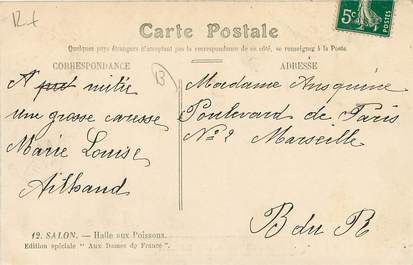 Carte Postale
Quelques pays étrangers n'acceptant pas la correspondance de ce côté, se renseigner à la Poste.
CORRESPONDANCE
ADRESSE
13
5c
A
une grosse caresse
Marie Louise
Ailhaud
Madame
Boulevard de Paris
No 2 Marseille
B du R
12. SALON. — Halle aux Poissons.
Edition spéciale " Aux Dames de France ".